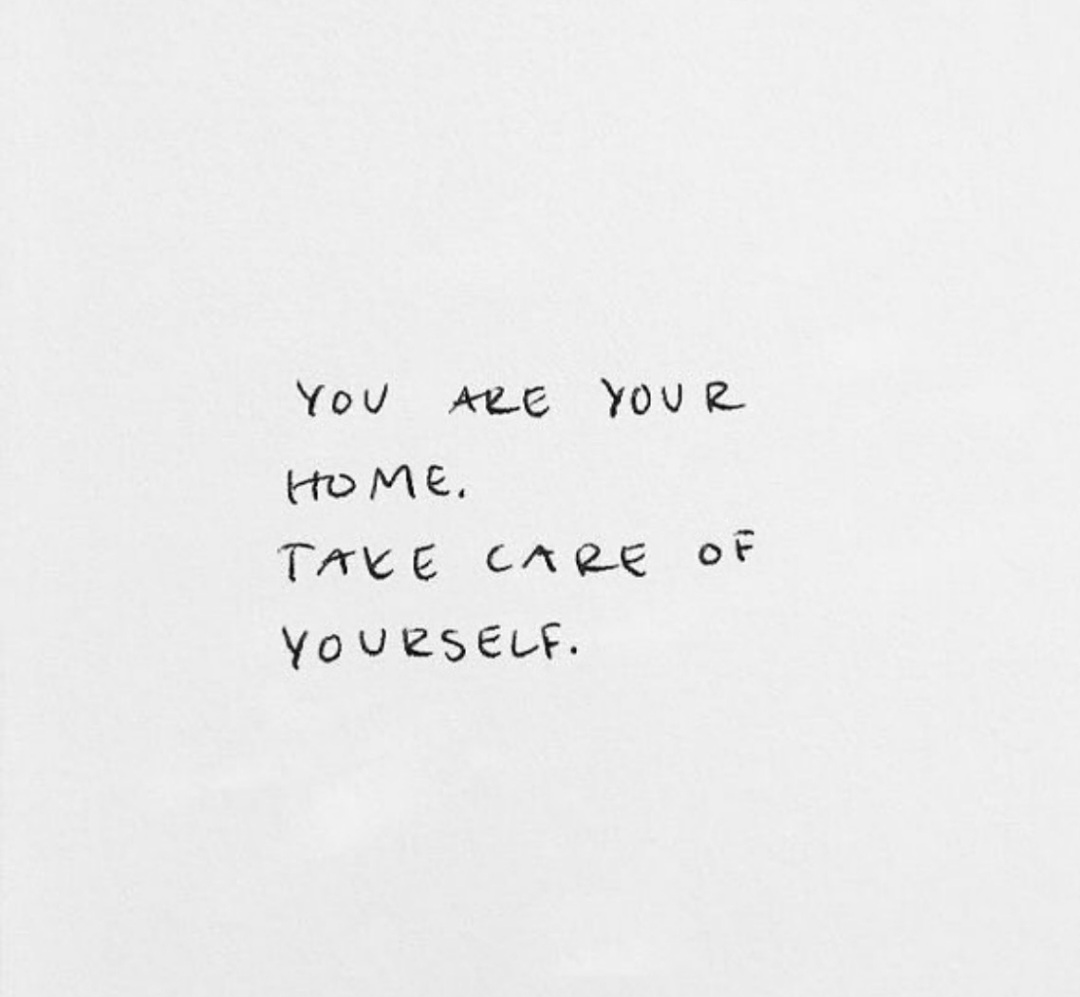 YOU ARE YOUR
HOME.
TAKE CARE OF
YOURSELF.